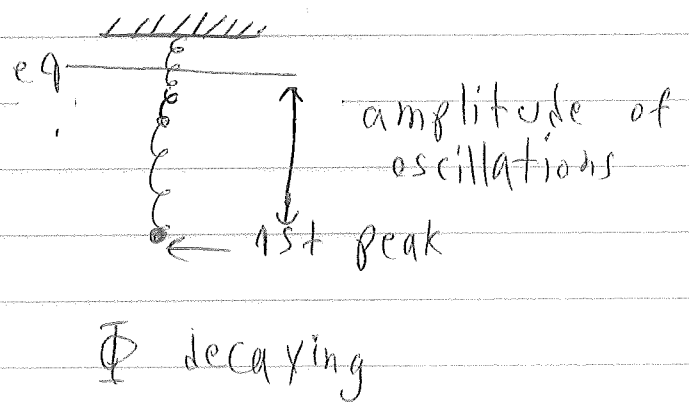 eq
amplitude of
oscillations
1st peak
Φ decaying